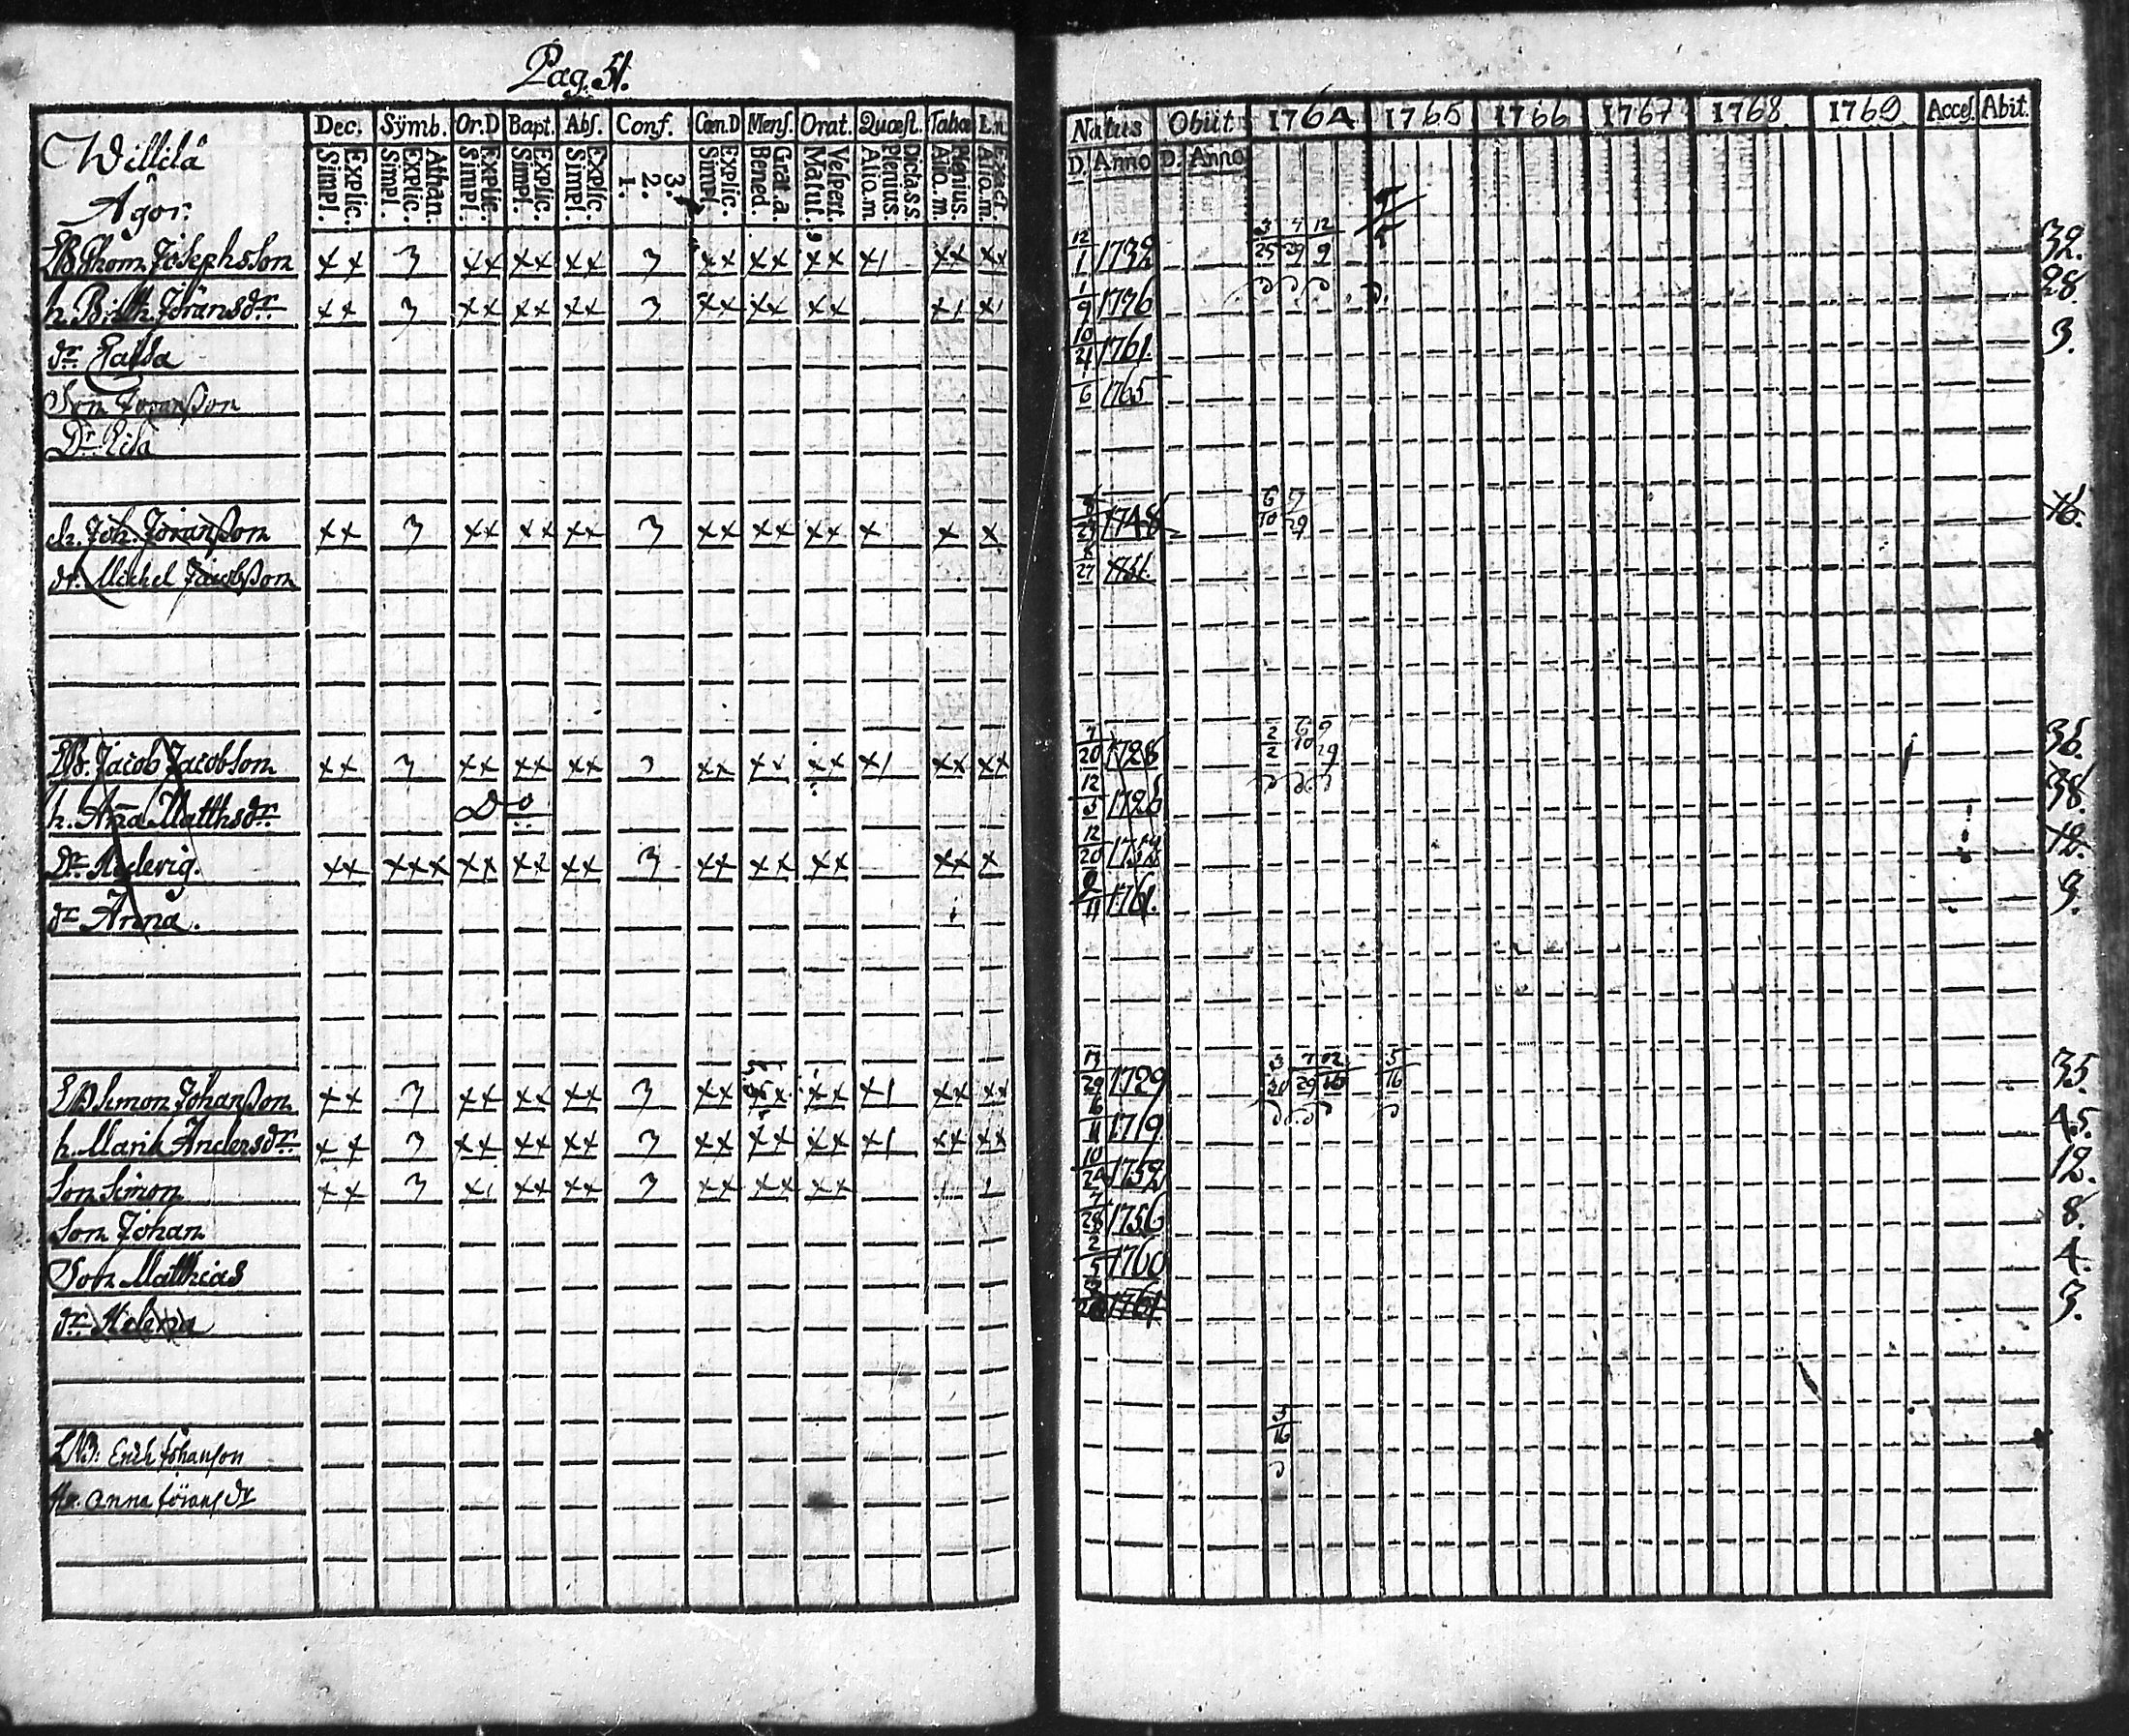 Pag. 51.
Dec. Sÿmb. Or.D Bapt. Abs. Conf. Cœn.D Mens. Orat. Quæst. Tabæ
Simpl. Explic. Simpl. Explic. Athan. Simpl. Explic. Simpl. Explic. Simpl. Explic. 1. 2. 3. Simpl. Explic. Bened. Grat.a. Matut. Vespert. Alio.m. Plenius Dicta.s.s. Alio.m. Plenius. Alio.m. Exact.
Willilä
Ägor.
Thom Josephsson ×× 3 ×× ×× ×× 3 ×× ×× ×× ×1 ×× ××
h. Brith Jöransdr. ×× 3 ×× ×× ×× 3 ×× ×× ×× ×1 ×1
dr.
Son Joranßon
Dr
Joh. Joranßon ×× 3 ×× ×× ×× 3 ×× ×× ×× × × ×
Michel Jacobßon
Jacob Jacobson ×× 3 ×× ×× ×× 3 ×× ×× ×× ×1 ×× ××
h. Aña Matthsdr.
Dr. Hedevig. ×× ××× ×× ×× ×× 3 ×× ×× ×× ×× ×
dr Anna.
Simon Johanßon ×× 3 ×× ×× ×× 3 ×× ×× ×× ×1 ×× ××
h. Maria Andersdr. ×× 3 ×× ×× ×× 3 ×× ×× ×× ×1 ×× ××
Son Simon ×× 3 ×1 ×× ×× 3 ×× ×× ××
Son Johan
Son Matthias
dr. Helena
Erich Johanson
Anna Jörans dr
Natus Obiit 1764 1765 1766 1767 1768 1769 Acces. Abit.
D. Anno D. Anno
12/1 1732 3/25 4/29 12/9 32.
1/9 1736 28.
10/21 1761. 3.
1/6 1765
1748 6/10 9/29 16.
8/27 1751.
7/20 1728 2/2 6/10 9/29 36.
12/3 1726 38.
12/20 1752 12.
9/11 1761. 3.
1729 5/16 35.
6/11 1719. 45.
10/29 1752 12.
7/28 1756 8.
2/5 1760 4.
1761 3.
3/16